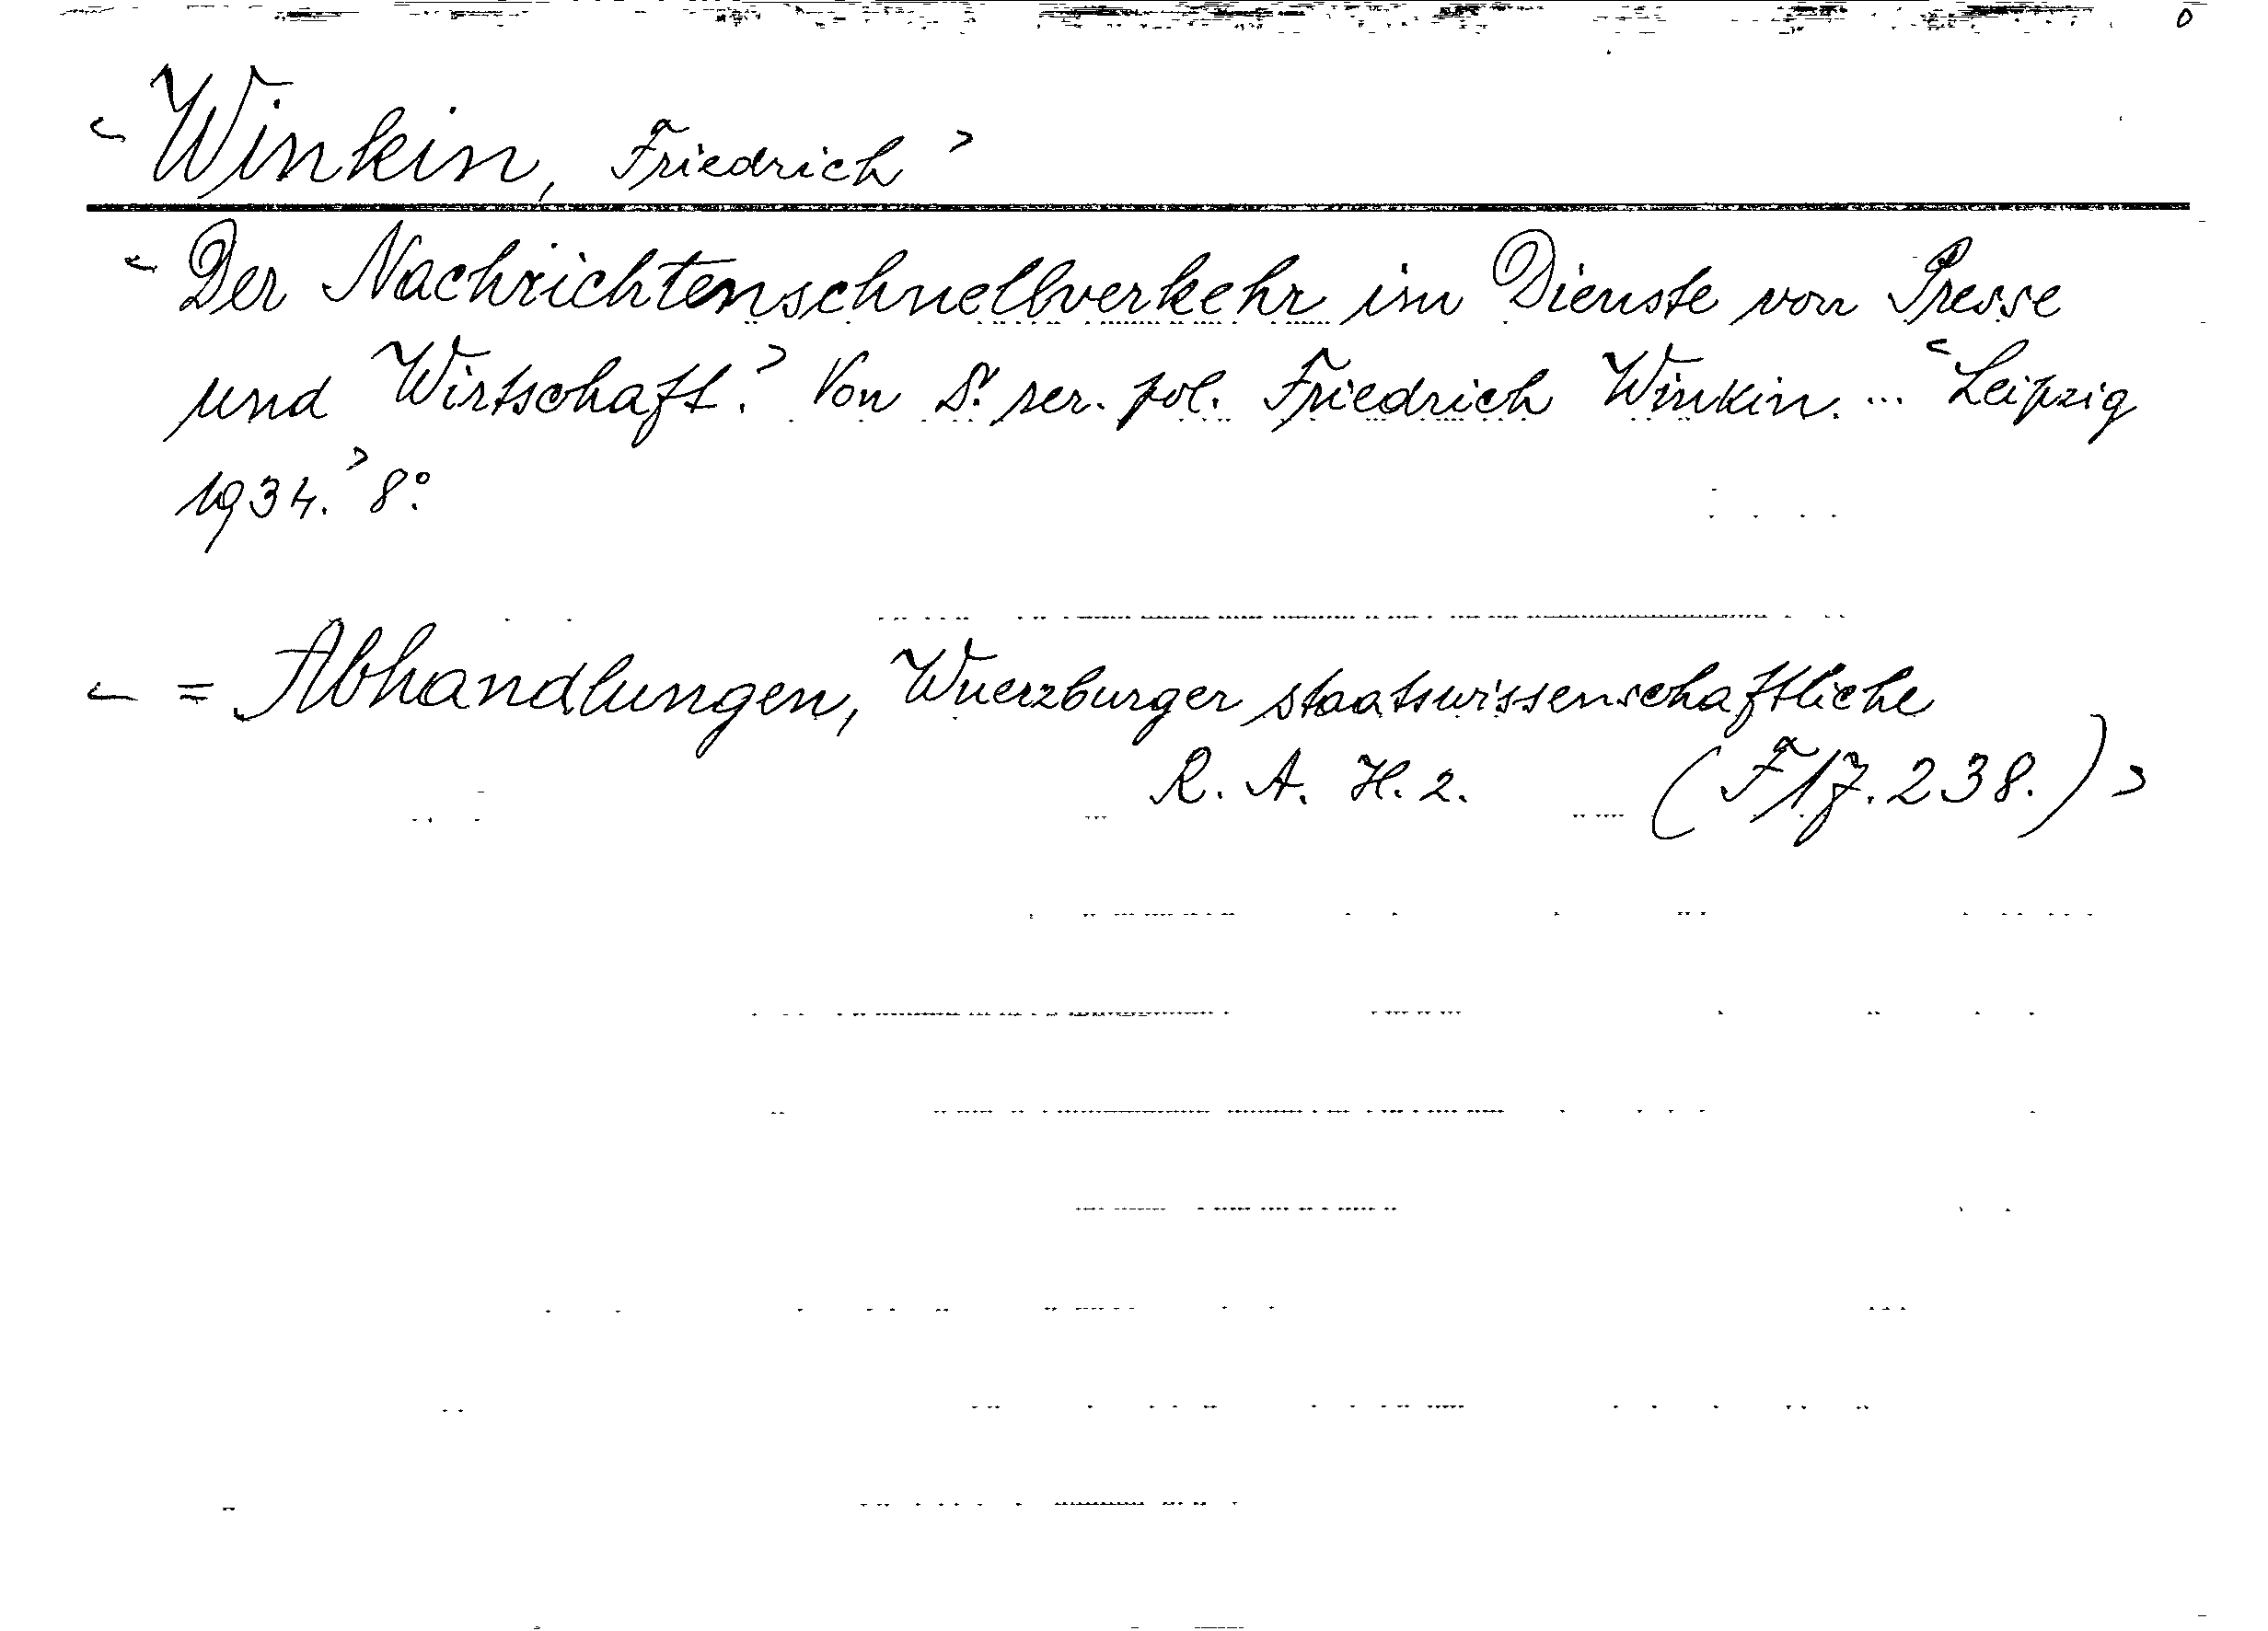 < Winkin, Friedrich >
< Der Nachrichtenschnellverkehr im Dienste von Presse
und Wirtschaft. > Von Dr. rer. pol. Friedrich Winkin. ... < Leipzig
1934. > 8°.
< = Abhandlungen, Wuerzburger staatswissenschaftliche
R. A. H. 2. (F 17. 238.) >